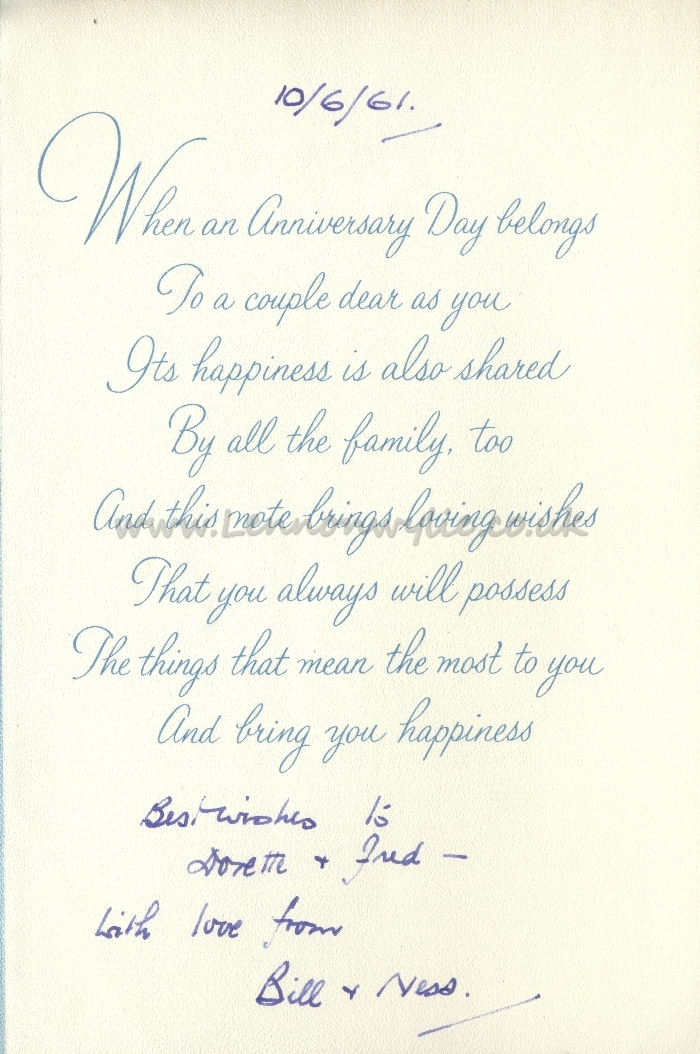 10/6/61.
When an Anniversary Day belongs
To a couple dear as you
Its happiness is also shared
By all the family, too
And this note brings loving wishes
www.Lennonwylie.co.uk
That you always will possess
The things that mean the most to you
And bring you happiness
Best wishes to
Dorette + Fred —
with love from
Bill + Ness.